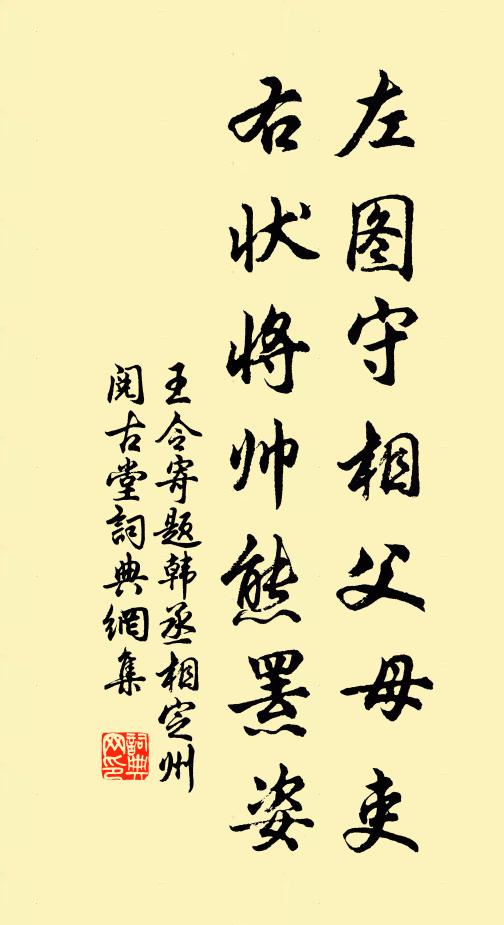 左图守相父母吏
右状将帅熊罴姿
王令寄题韩丞相定州
阅古堂詞典網集
詞典
网印